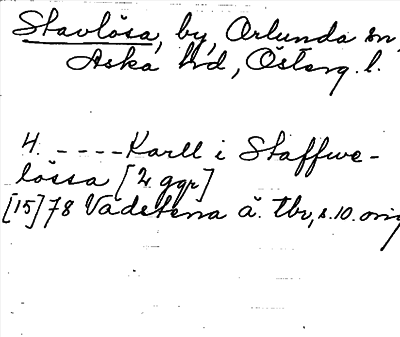 Stavlösa, by, Orlunda sn,
Aska hd, Österg. l.
4. ---- Karll i Staffwe-
lössa [2 ggr]
[15]78 Vadstena ä. tbr, s. 10. orig